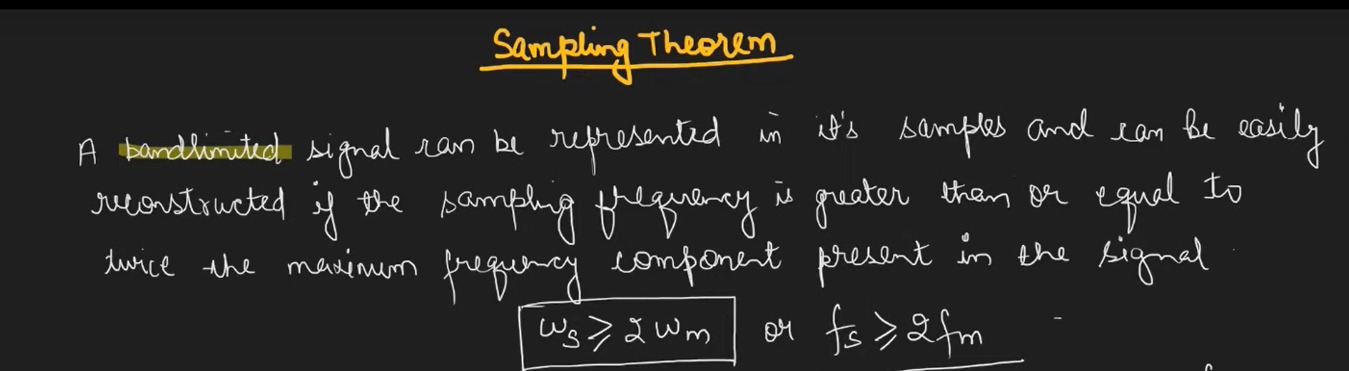 Sampling Theorem
A bandlimited signal can be represented in it's samples and can be easily
reconstructed if the sampling frequency is greater than or equal to
twice the maximum frequency component present in the signal
ws ≥ 2 wm or fs ≥ 2 fm